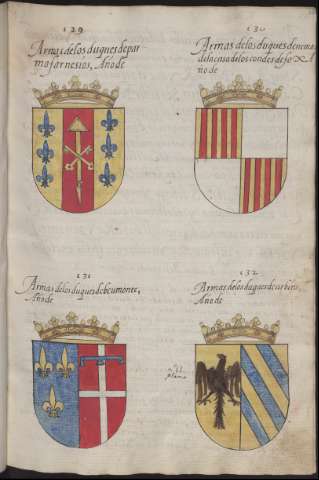 129
Armas de los duques de par
ma farnesios, Año de
130
Armas de los duques de
de los condes de fox A
ño de
131
Armas de los duques de beumonte,
Año de
132
Armas de los duques de urbino,
Año de